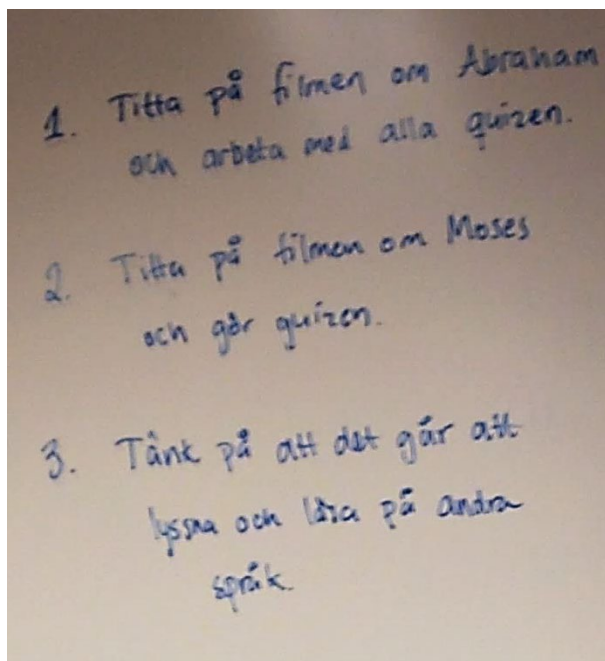 1. Titta på filmen om Abraham
och arbeta med alla quizen.
2. Titta på filmen om Moses
och gör quizen.
3. Tänk på att det går att
lyssna och läsa på andra
språk.